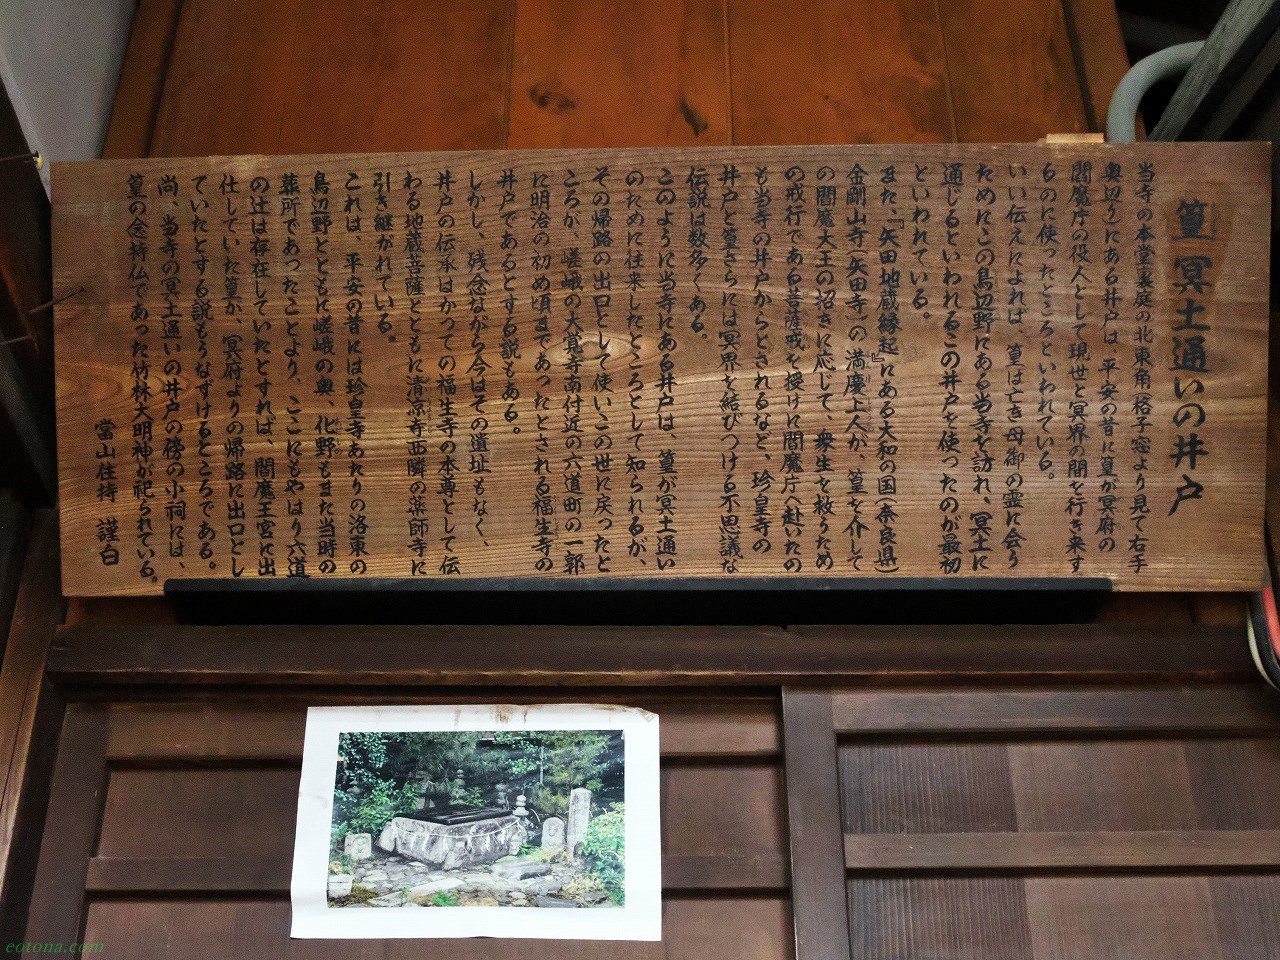 篁冥土通いの井戸
当寺の本堂裏庭の北東角(格子窓より見て右手
奥辺り)にある井戸は、平安の昔に篁が冥府の
閻魔庁の役人として現世と冥界の間を行き来す
ものに使ったところといわれている。
いい伝えによれば、篁は亡き母御の霊に会う
ためにこの鳥辺野にある当寺を訪れ、冥土に
通じるといわれるこの井戸を使ったのが最初
といわれている。
また、『矢田地蔵縁起』にある大和の国(奈良県)
金剛山寺(矢田寺)の満慶上人が、篁を介して
の閻魔大王の招きに応じて、衆生を救うため
の戒行である菩薩戒を授けに閻魔庁へ赴いたの
も当寺の井戸からとされるなど、珍皇寺の
井戸と篁さらには冥界を結びつける不思議な
伝説は数多くある。
このように当寺にある井戸は、篁が冥土通い
のために往来したところとして知られるが、
その帰路の出口として使いこの世に戻ったと
ころが、嵯峨の大覚寺南付近の六道町の一郭
に明治の初め頃まであったとされる福生寺の
井戸であるとする説もある。
しかし、残念ながら今はその遺址もなく、
井戸の伝承はかつての福生寺の本尊として伝
わる地蔵菩薩とともに清凉寺西隣の薬師寺に
引き継がれている。
これは、平安の昔には珍皇寺あたりの洛東の
鳥辺野とともに嵯峨の奥、化野もまた当時の
葬所であったことより、ここにもやはり六道
の辻は存在していたとすれば、閻魔王宮に出
仕していた篁が、冥府よりの帰路に出口とし
ていたとする説もうなずけるところである。
尚、当寺の冥土通いの井戸の傍の小祠には、
篁の念持仏であった竹林大明神が祀られている。
當山住持 謹白
eotona.com